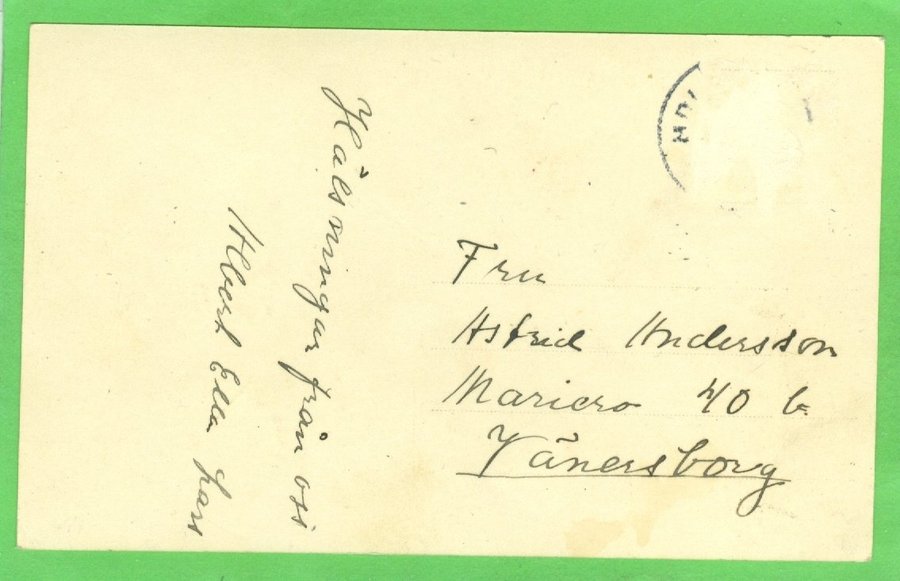 Hälsningar från oss
Albert Ella Lars
Fru
Astrid Andersson
Mariero 40 b.
Vänersborg